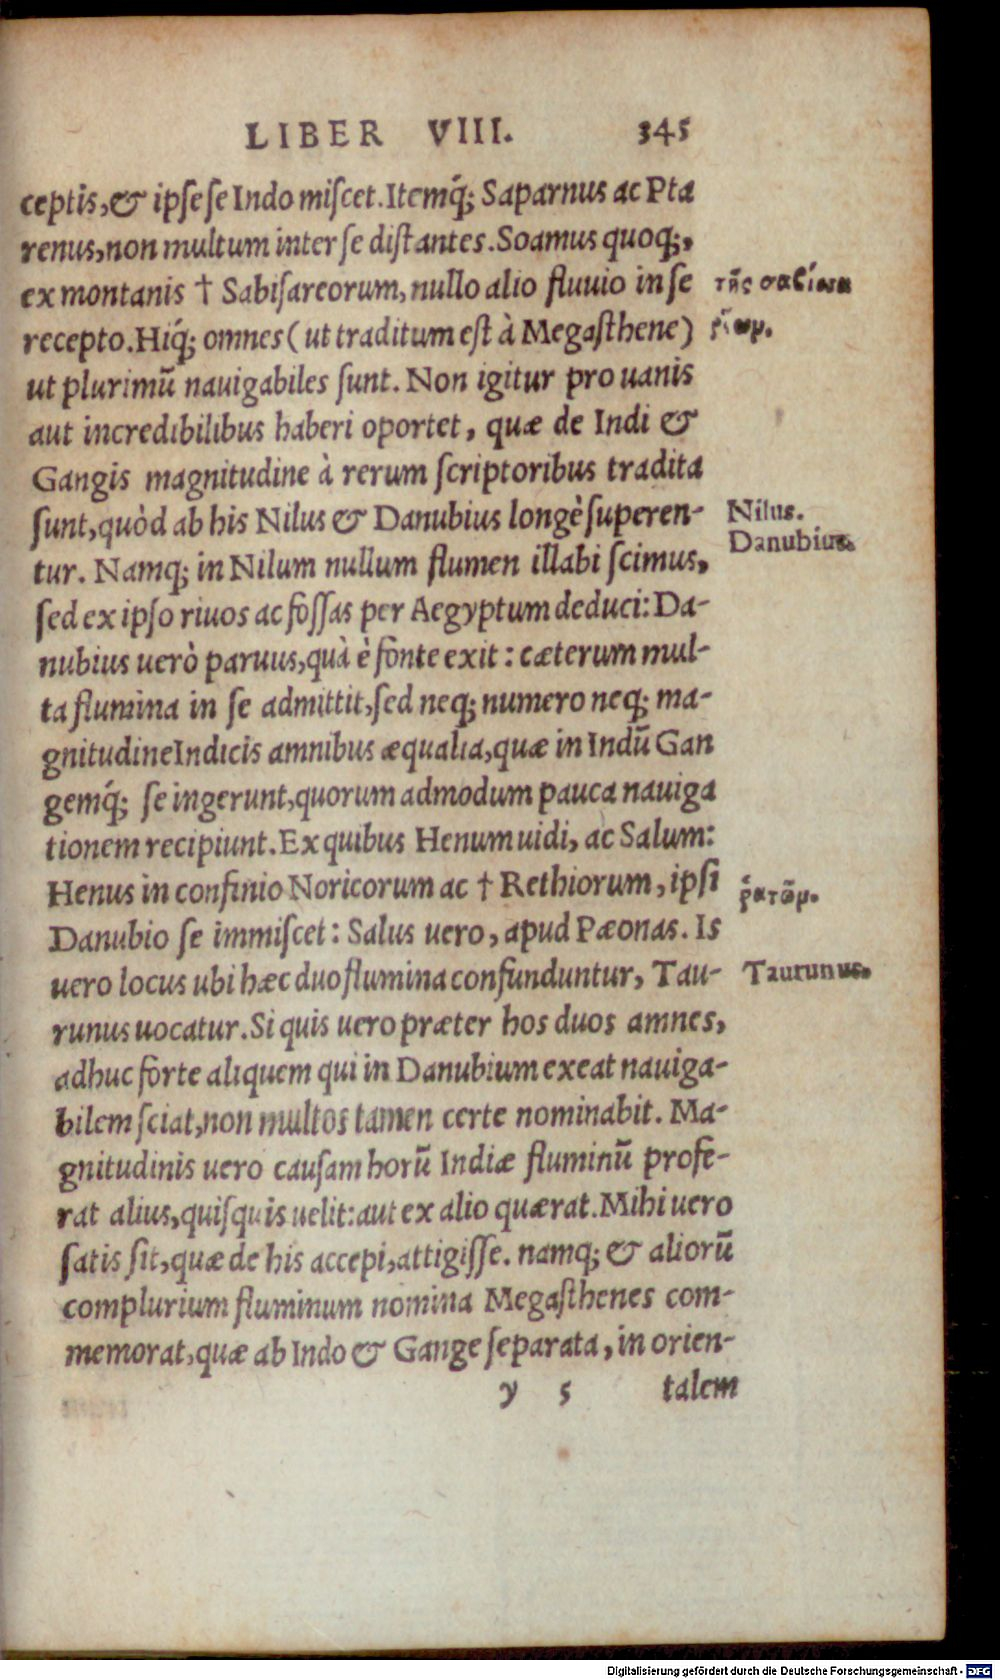 LIBER VIII. 345
ceptis, & ipse se Indo miscet. Itemq́; Saparnus ac Pta
renus, non multum inter se distantes. Soamus quoq;,
ex montanis † Sabisareorum, nullo alio fluuio in se
recepto. Hiq́; omnes (ut traditum est à Megasthene)
ut plurimũ nauigabiles sunt. Non igitur pro uanis
aut incredibilibus haberi oportet, quæ de Indi &
Gangis magnitudine à rerum scriptoribus tradita
sunt, quòd ab his Nilus & Danubius longè superen-
Nilus.
Danubius.
tur. Namq; in Nilum nullum flumen illabi scimus,
sed ex ipso riuos ac fossas per Aegyptum deduci: Da-
nubius uerò paruus, quà è fonte exit: cæterum mul-
ta flumina in se admittit, sed neq; numero neq; ma-
gnitudine Indicis amnibus æqualia, quæ in Indũ Gan
gemq́; se ingerunt, quorum admodum pauca nauiga
tionem recipiunt. Ex quibus Henum uidi, ac Salum:
Henus in confinio Noricorum ac † Rethiorum, ipsi
ῥατῶμ.
Danubio se immiscet: Salus uero, apud Pæonas. Is
uero locus ubi hæc duo flumina confunduntur, Tau-
Taurunus.
runus uocatur. Si quis uero præter hos duos amnes,
adhuc forte aliquem qui in Danubium exeat nauiga-
bilem sciat, non multos tamen certe nominabit. Ma-
gnitudinis uero causam horũ Indiæ fluminũ profe-
rat alius, quisquis uelit: aut ex alio quærat. Mihi uero
satis sit, quæ de his accepi, attigisse. namq; & aliorũ
complurium fluminum nomina Megasthenes com-
memorat, quæ ab Indo & Gange separata, in orien-
y 5 talem
Digitalisierung gefördert durch die Deutsche Forschungsgemeinschaft - DFG